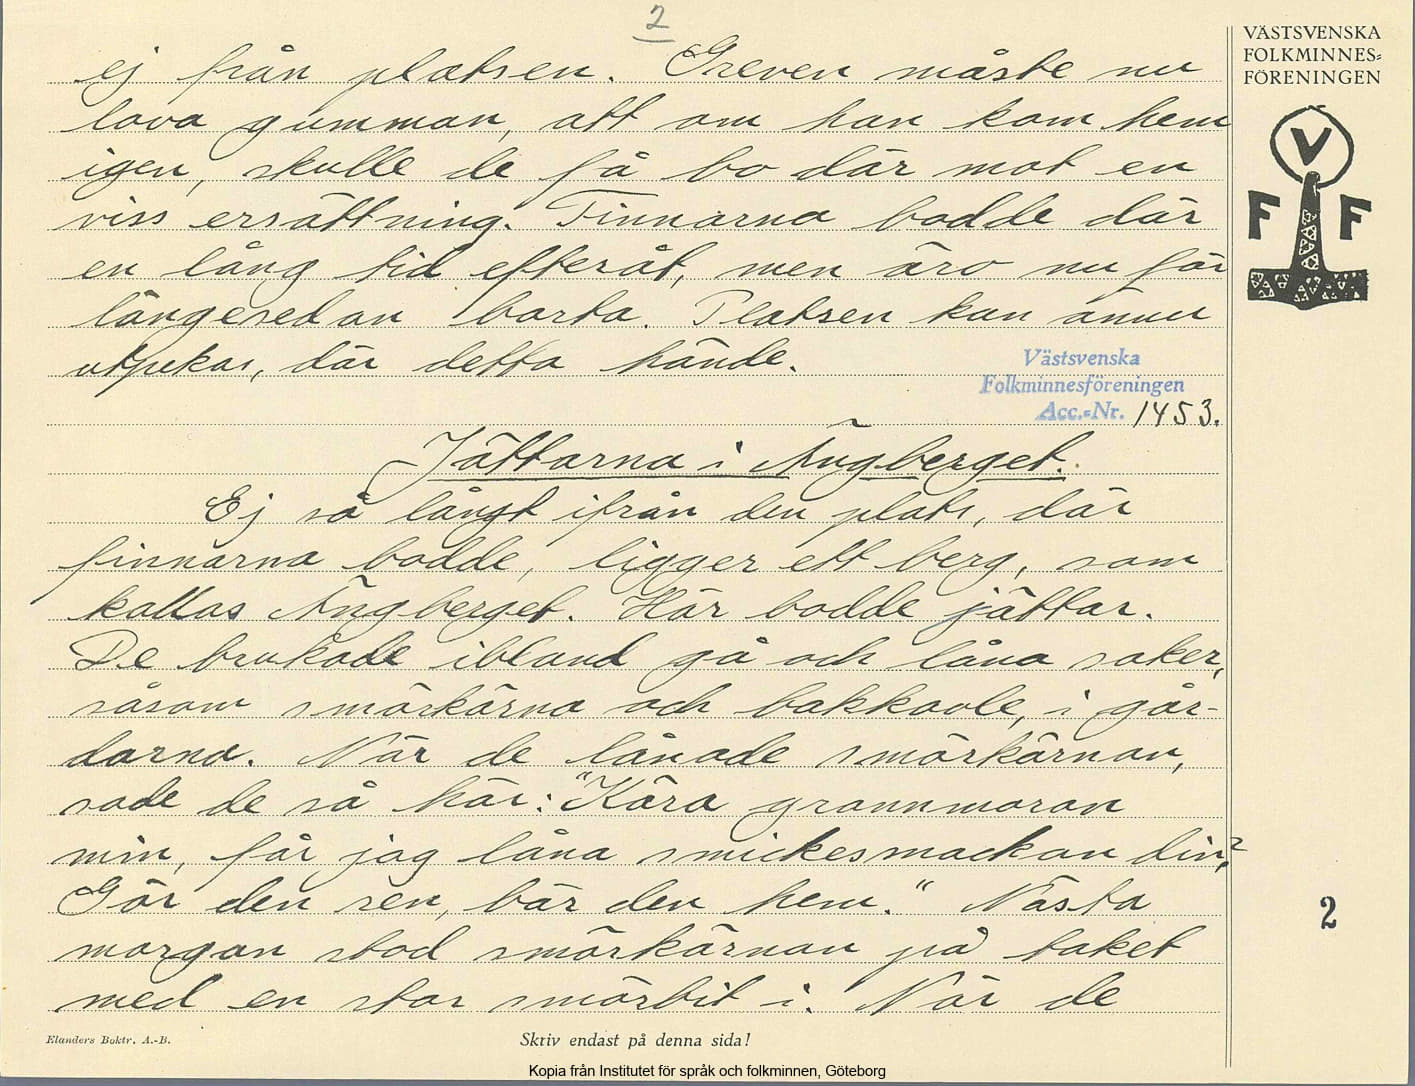 2
VÄSTSVENSKA
FOLKMINNES=
FÖRENINGEN
V
F F
ej från platsen. Greven måste nu
lova gumman, att om han kom hem
igen, skulle de få bo där mot en
viss ersättning. Finnarna bodde där
en lång tid efteråt, men äro nu för
längesedan borta. Platsen kan ännu
utpekas, där detta hände.
Västsvenska
Folkminnesföreningen
Acc.=Nr. 1453.
Jättarna i Ängberget.
Ej så långt ifrån den plats, där
finnarna bodde, ligger ett berg, som
kallas Ängberget. Här bodde jättar.
De brukade ibland gå och låna saker,
såsom smörkärna och bakkavle, i går-
darna. När de lånade smörkärnan,
sade de så här: "Kära grannmoran
min, får jag låna smickesmackan din?
Gör den ren, bär den hem." Nästa
morgon stod smörkärnan på taket
med en stor smörbit i. När de
2
Elanders Boktr. A.-B.
Skriv endast på denna sida!
Kopia från Institutet för språk och folkminnen, Göteborg